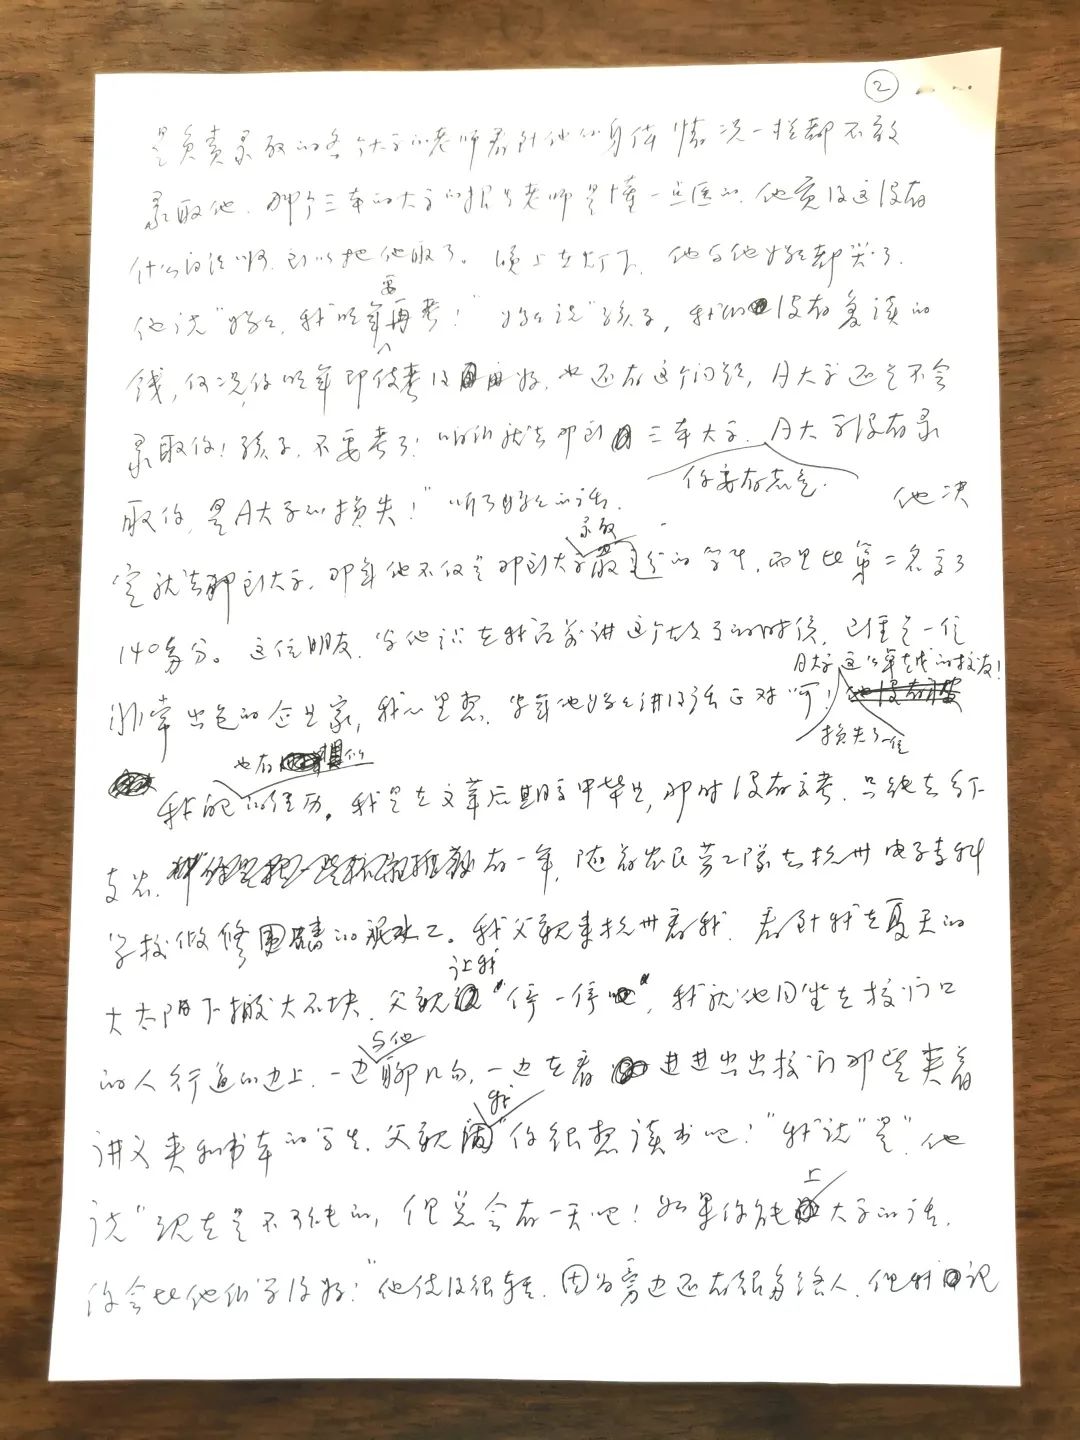 ②
是负责录取的各个大学的老师看到他的身体情况一栏都不敢
录取他，那个三本的大学的招生老师是懂一点医的，他觉得这没有
什么的，所以把他取了。晚上在灯下，他与他妈妈都哭了。
他说“妈妈，我明年要再考！”妈妈说“孩子，我们没有复读的
钱，何况你明年即使考得再好，也还有这个问题，A大学还是不会
录取你！孩子，不要考了！咱们就去那所三本大学，A大学没有录
你要有志气。
取你，是A大学的损失！”听了妈妈的话，他决
定就去那所大学，那年他不仅是那所大学录取最高分的学生，而且比第二名高了
140多分。这位朋友，当他坐在我面前讲这个故事的时候，已经是一位
非常出色的企业家，我心里想，当年他妈妈讲得话正对啊！A大学损失了一位这么卓越的校友！
我也有相似的经历。我是在文革后期高中毕业，那时没有高考，只能去乡下
支农，有一年，随着农民劳工队去杭州电子专科
学校做修围墙的泥水工。我父亲来杭州看我，看到我在夏天的
大太阳下搬大石块，父亲让我“停一停”，我就他同坐在校门口
的人行道的边上，一边与他聊几句，一边在看进进出出校门那些夹着
讲义夹和书本的学生，父亲问我“你很想读书吧！”我说“是”，他
说“现在是不可能的，但总会有一天吧！如果你能上大学的话，
你会比他们学得好！”他说得很轻，因为旁边还有很多路人，但我记